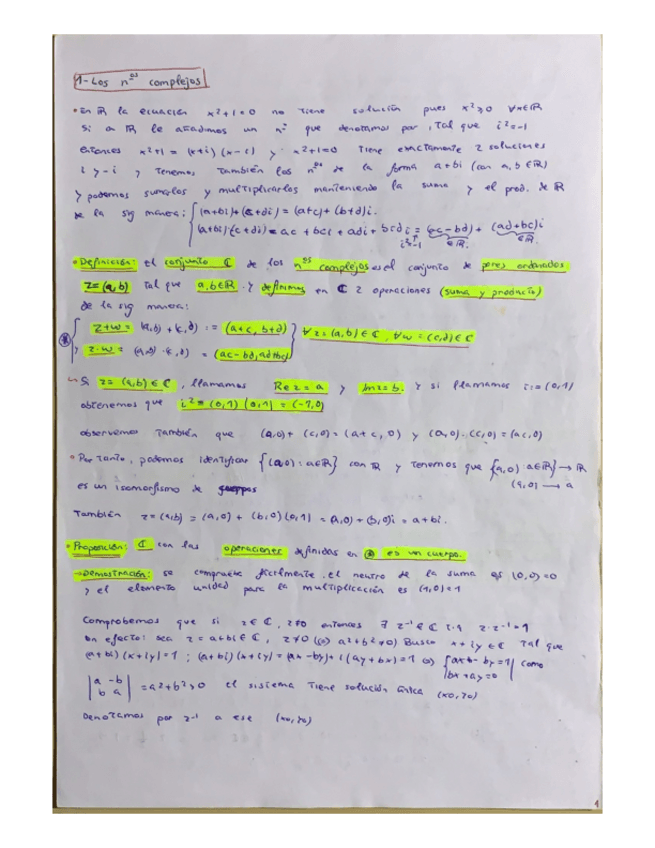 1-Los nºs complejos
• En ℝ la ecuación x²+1=0 no tiene solución pues x²≥0 ∀x∈ℝ
Si a ℝ le añadimos un nº que denotamos por i, tal que i²=-1
entonces x²+1 = (x+i)(x-i) y x²+1=0 tiene exactamente 2 soluciones
i y -i, y tenemos también los nºs de la forma a+bi (con a,b∈ℝ)
y podemos sumarlos y multiplicarlos manteniendo la suma y el prod. de ℝ
de la sig manera: (a+bi)+(c+di) = (a+c)+(b+d)i.
(a+bi)·(c+di) = ac + bci + adi + bdi² = (ac-bd) + (ad+bc)i
i²=-1 ∈ℝ. ∈ℝ.
• Definición: El conjunto ℂ de los nºs complejos es el conjunto de pares ordenados
z=(a,b) tal que a,b∈ℝ. Y definimos en ℂ 2 operaciones (suma y producto)
de la sig manera:
⊛ { z+w = (a,b)+(c,d) := (a+c, b+d) } ∀z=(a,b)∈ℂ, ∀w=(c,d)∈ℂ
y z·w = (a,b)·(c,d) = (ac-bd, ad+bc)
↳ Si z=(a,b)∈ℂ, llamamos Re z=a y Im z=b. Y si llamamos i:=(0,1)
obtenemos que i²=(0,1)(0,1)=(-1,0)
observemos también que (a,0)+(c,0)=(a+c,0) y (a,0)·(c,0)=(ac,0)
• Por tanto, podemos identificar {(a,0): a∈ℝ} con ℝ y tenemos que {(a,0): a∈ℝ} → ℝ
(a,0) → a
es un isomorfismo de cuerpos
También z=(a,b) = (a,0)+(b,0)(0,1) = (a,0)+(b,0)i = a+bi.
• Proposición: ℂ con las operaciones definidas en ⊛ es un cuerpo.
→Demostración: se comprueba fácilmente, el neutro de la suma es (0,0)=0
y el elemento unidad para la multiplicación es (1,0)=1
Comprobemos que si z∈ℂ, z≠0 entonces ∃ z⁻¹∈ℂ t.q z·z⁻¹=1
En efecto: sea z=a+bi∈ℂ, z≠0 (⇔ a²+b²≠0) Busco x+iy∈ℂ tal que
(a+bi)(x+iy)=1; (a+bi)(x+iy)=(ax-by)+i(ay+bx)=1 ⇔ { ax-by=1 como
bx+ay=0
|a -b|
|b a| = a²+b²>0 el sistema tiene solución única (x0,y0)
Denotamos por z⁻¹ a ese (x0,y0)
1